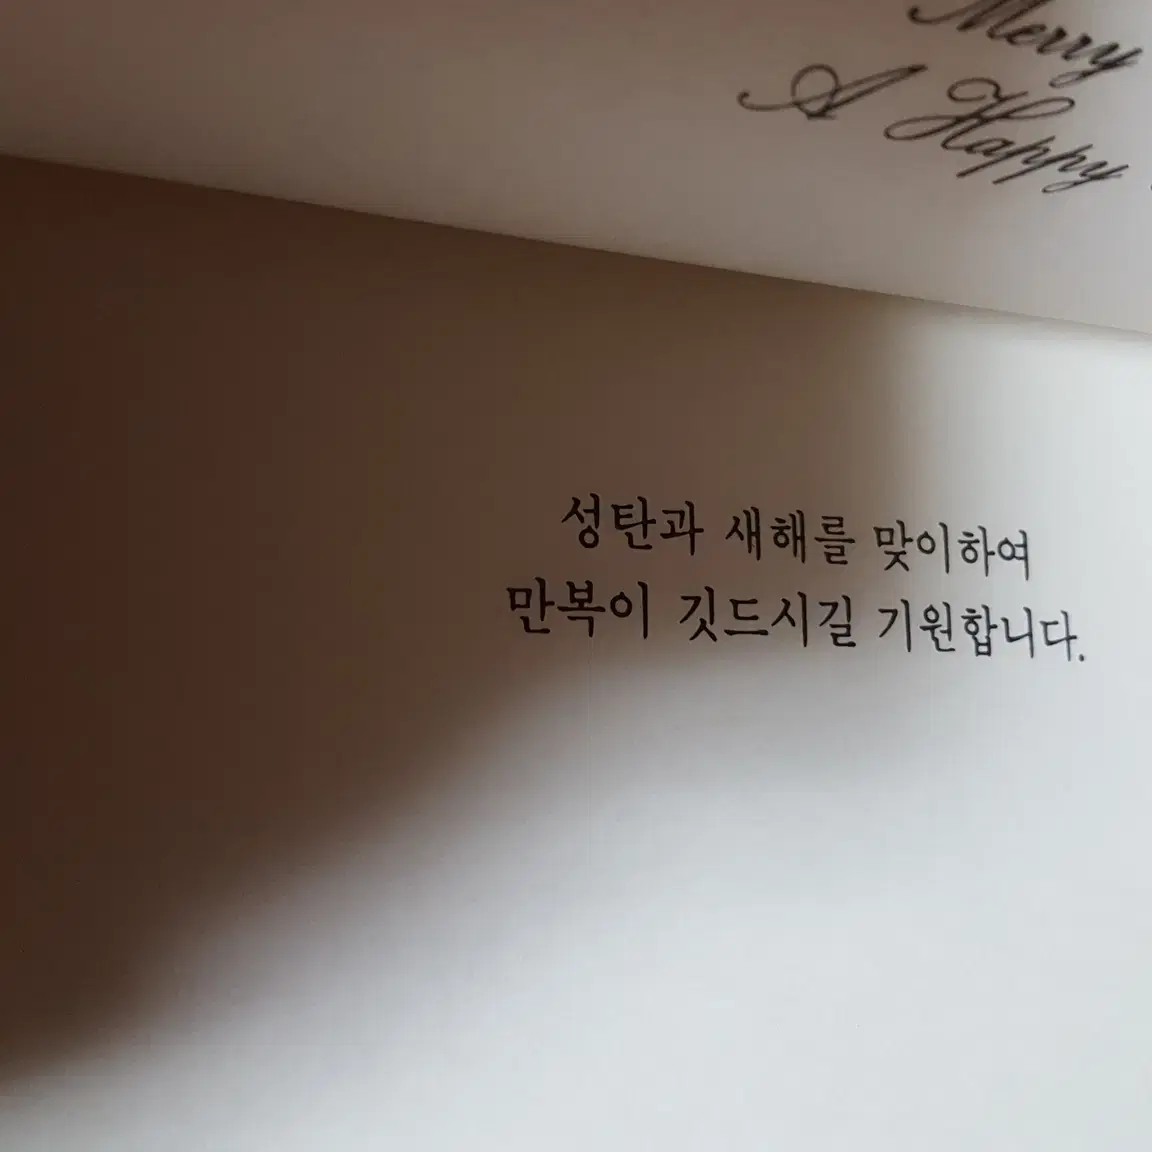 Merry
A Happy
성탄과 새해를 맞이하여
만복이 깃드시길 기원합니다.